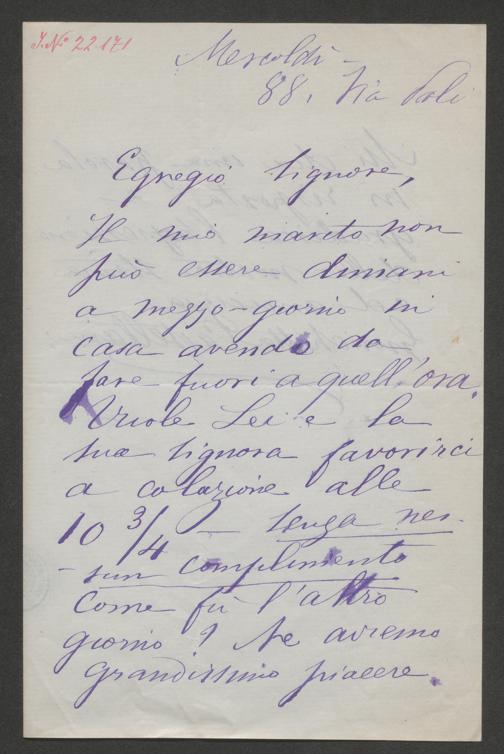 J. Nº 22171
Mercoldì -
88. Via Poli
Egregio Signore,
Il mio marito non
può essere dimani
a mezzo-giorno in
casa avendo da
fare fuori a quell'ora.
Vuole Lei e la
sua Signora favorirci
a colazione alle
10 3/4 - senza nes-
- sun complimento
come fù l'altro
giorno? Ne avremo
grandissimo piacere.